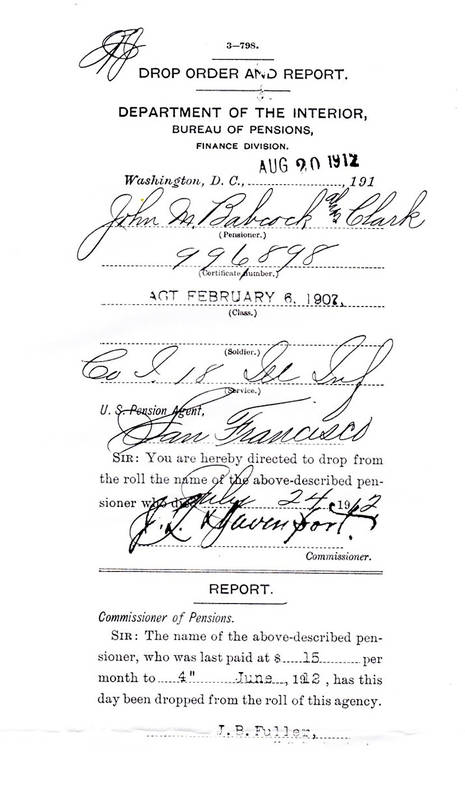 3—798.
DROP ORDER AND REPORT.
DEPARTMENT OF THE INTERIOR,
BUREAU OF PENSIONS,
FINANCE DIVISION.
AUG 20 1912
Washington, D. C., 191
John M. Babcock alias Clark
(Pensioner.)
996898
(Certificate number.)
ACT FEBRUARY 6, 1907.
(Class.)
(Soldier.)
Co I. 18 Ill Inf
(Service.)
U. S. Pension Agent,
San Francisco
SIR: You are hereby directed to drop from
the roll the name of the above-described pen-
sioner who died July 24, 1912
J. L. Davenport.
Commissioner.
REPORT.
Commissioner of Pensions.
SIR: The name of the above-described pen-
sioner, who was last paid at $ 15 per
month to 4" June, 1912, has this
day been dropped from the roll of this agency.
J. B. Fuller,